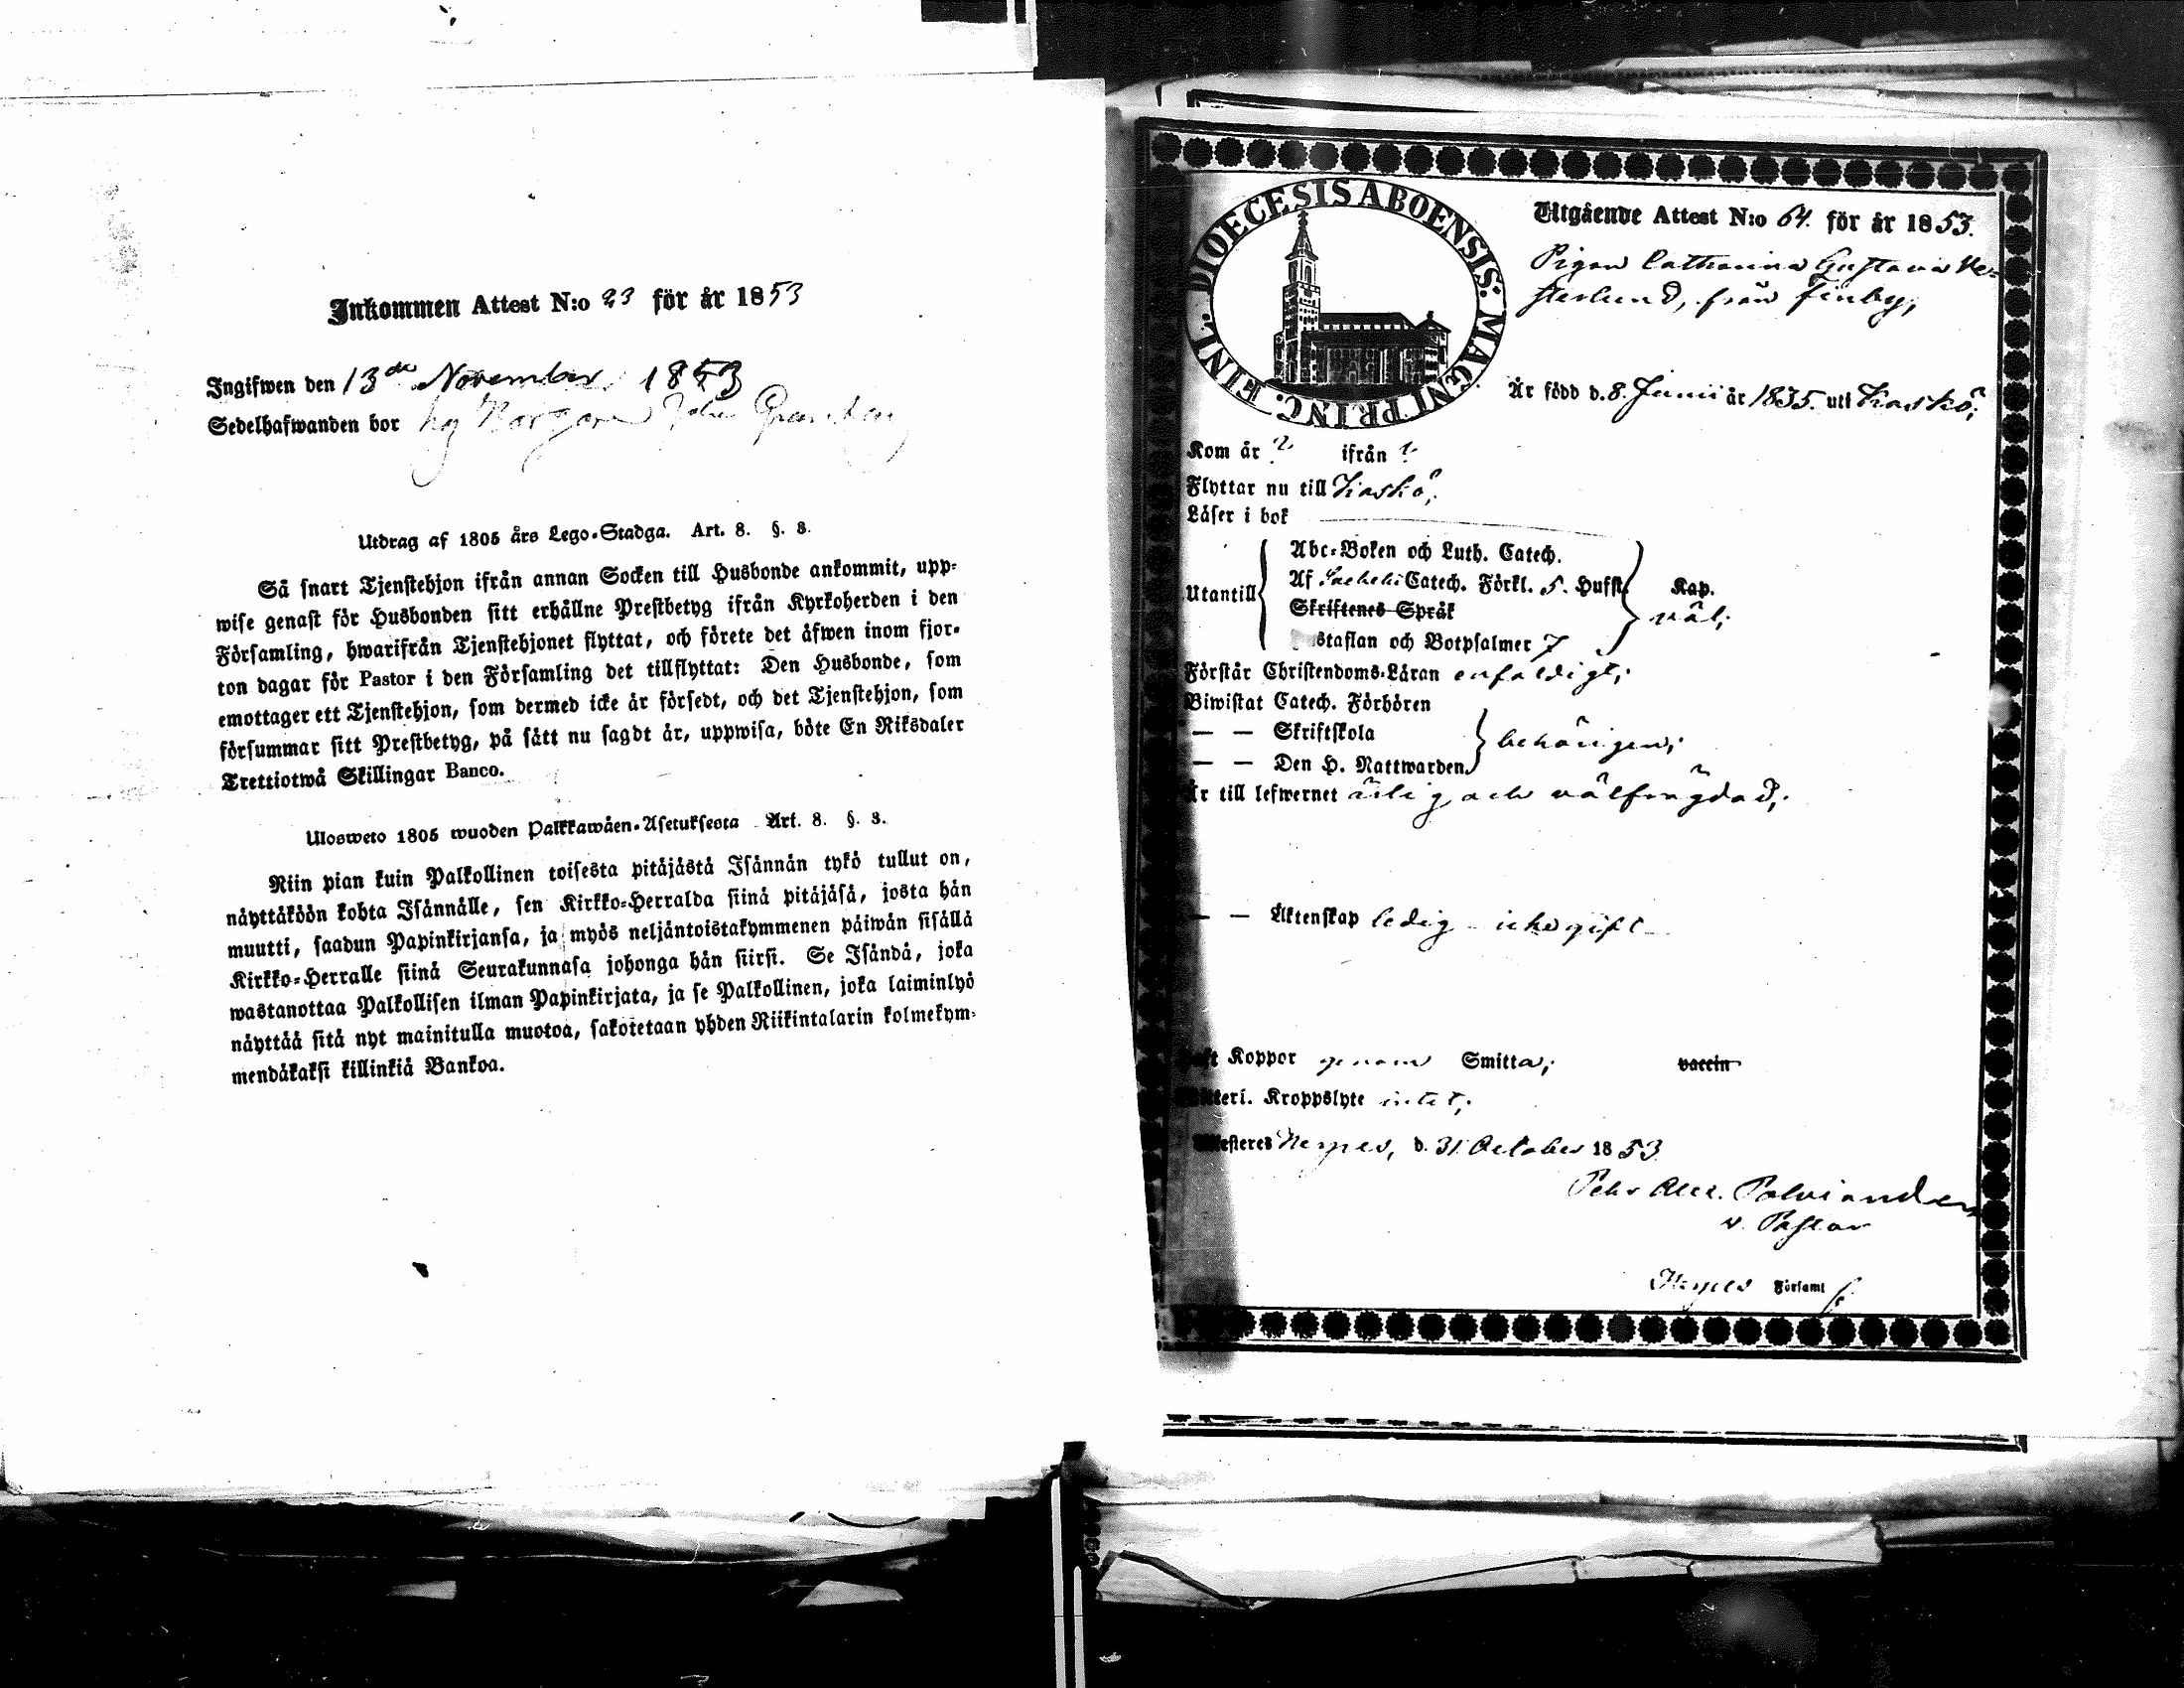 Inkommen Attest N:o 23 för år 1853
Ingifwen den 13de November 1853
Sedelhafwanden bor hg Borgaren
Utdrag af 1805 års Lego-Stadga. Art. 8. §. 3.
Så snart Tjenstehjon ifrån annan Socken till Husbonde ankommit, upp-
wise genast för Husbonden sitt erhållne Prestbetyg ifrån Kyrkoherden i den
Församling, hwarifrån Tjenstehjonet flyttat, och förete det äfwen inom fjor-
ton dagar för Pastor i den Församling det tillflyttat: Den Husbonde, som
emottager ett Tjenstehjon, som dermed icke är försedt, och det Tjenstehjon, som
försummar sitt Prestbetyg, på sätt nu sagdt är, uppwisa, böte En Riksdaler
Trettiotwå Skillingar Banco.
Ulosweto 1805 wuoden Palkkawäen-Asetuksesta Art. 8. §. 3.
Niin pian kuin Palkollinen toisesta pitäjästä Isännän tykö tullut on,
näyttäköön kohta Isännälle, sen Kirkko-Herralda siinä pitäjäsä, josta hän
muutti, saadun Papinkirjansa, ja myös neljäntoistakymmenen päiwän sisällä
Kirkko-Herralle siinä Seurakunnasa johonga hän siirsi. Se Isändä, joka
wastanottaa Palkollisen ilman Papinkirjata, ja se Palkollinen, joka laiminlyö
näyttää sitä nyt mainitulla muotoa, sakotetaan yhden Riikintalarin kolmekym-
mendäkaksi killinkiä Bankoa.
DIOECESIS ABOENSIS. MAGNI PRINC. FINL.
Utgående Attest N:o 64. för år 1853.
Pigan Catharina Gustava We-
sterlund, från Finby,
Är född d. 8. Junii år 1835. uti Kaskö;
Kom år ? ifrån ?
Flyttar nu till Kaskö;
Läser i bok
Abc-Boken och Luth. Catech.
Utantill Af Catech. Förkl. 5. Hufst. Kap.
Skriftenes Språk väl;
staflan och Botpsalmer 7
Förstår Christendoms-Läran enfaldigt;
Biwistat Catech. Förhören
— — Skriftskola behörigen;
— — Den H. Nattwarden
Är till lefwernet ärlig och välfrägdad;
— — Äktenskap ledig icke gift
Haft Koppor genom Smitta; vaccin
Kroppslyte intet;
Attesteres Nerpes, d. 31 October 1853
Pehr Alex. Polviander
v. Pastor
Nerpes Församl